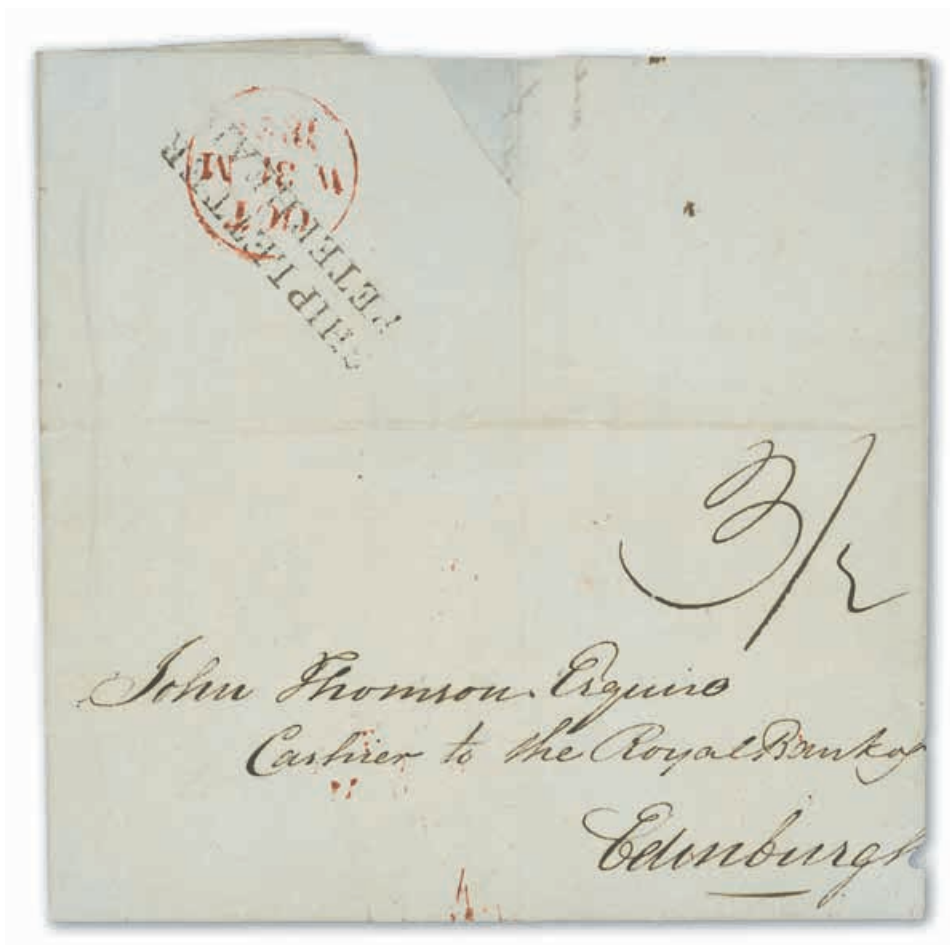 SHIP LETTER
PETERHEAD
OCT
W 3 M
3/2
John Thomson Esquire
Cashier to the Royal Bank of
Edinburgh